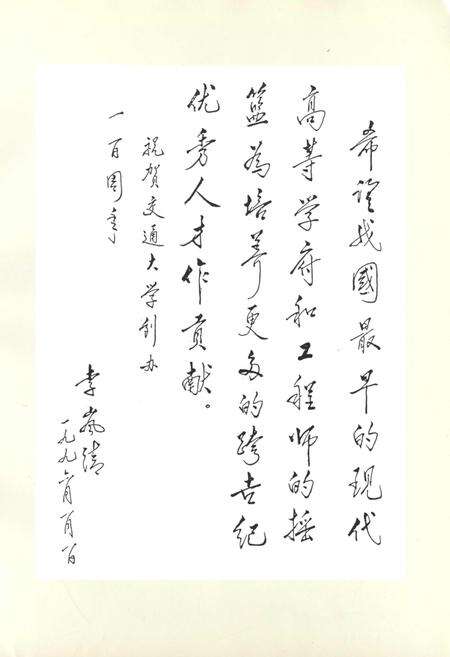 希望我國最早的現代
高等学府和工程师的摇
籃為培养更多的跨世紀
优秀人才作貢献。
祝贺交通大学创办
一百周年
李岚清
一九九六年一月一日